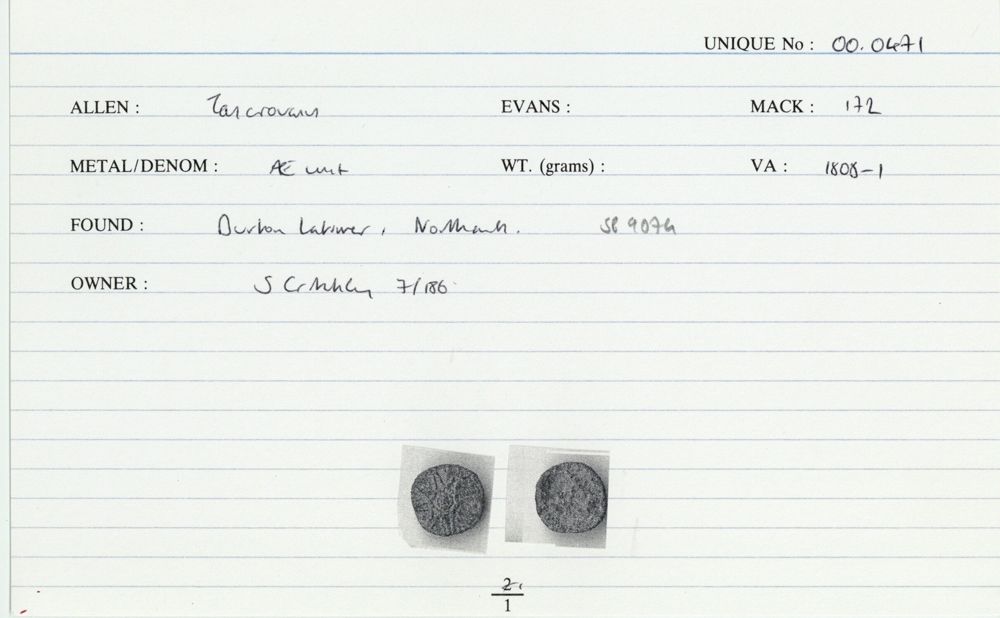 UNIQUE No : 00.0471
ALLEN : Tasciovanus EVANS : MACK : 172
METAL/DENOM : Æ unit WT. (grams) : VA : 1808-1
FOUND : Burton Latimer, Northants. SP 9074
OWNER : S 7/186
2
1